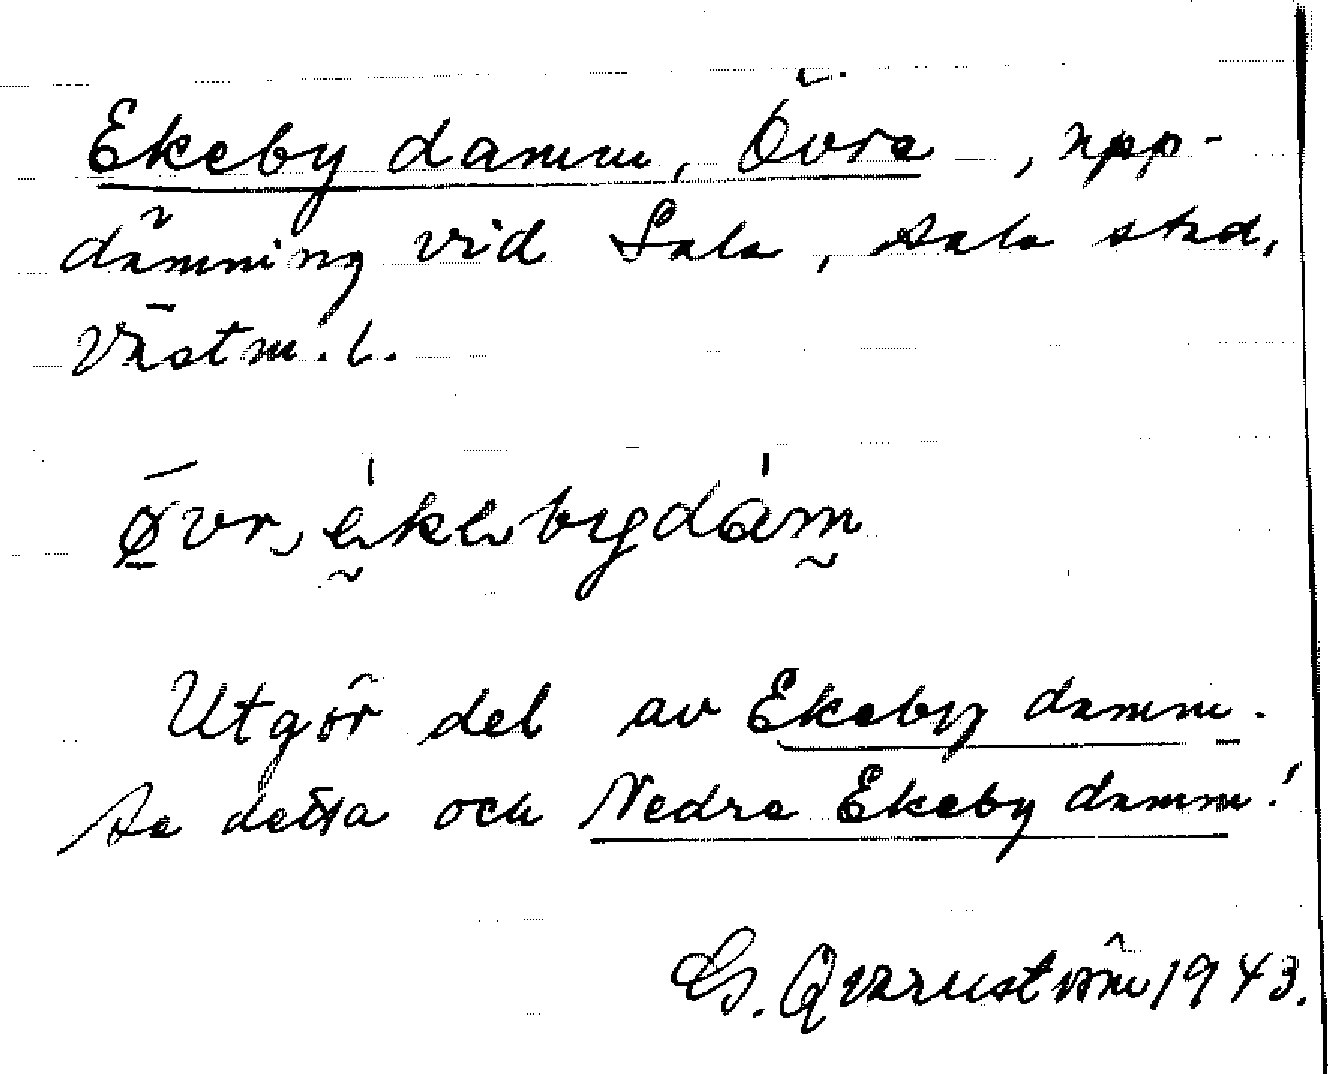 Ekeby damm, Övre, upp-
dämning vid Sala, Sala stad,
Västm. l.
Utgör del av Ekeby damm.
Se detta och Nedre Ekeby damm!
G. Qvarnström 1943.